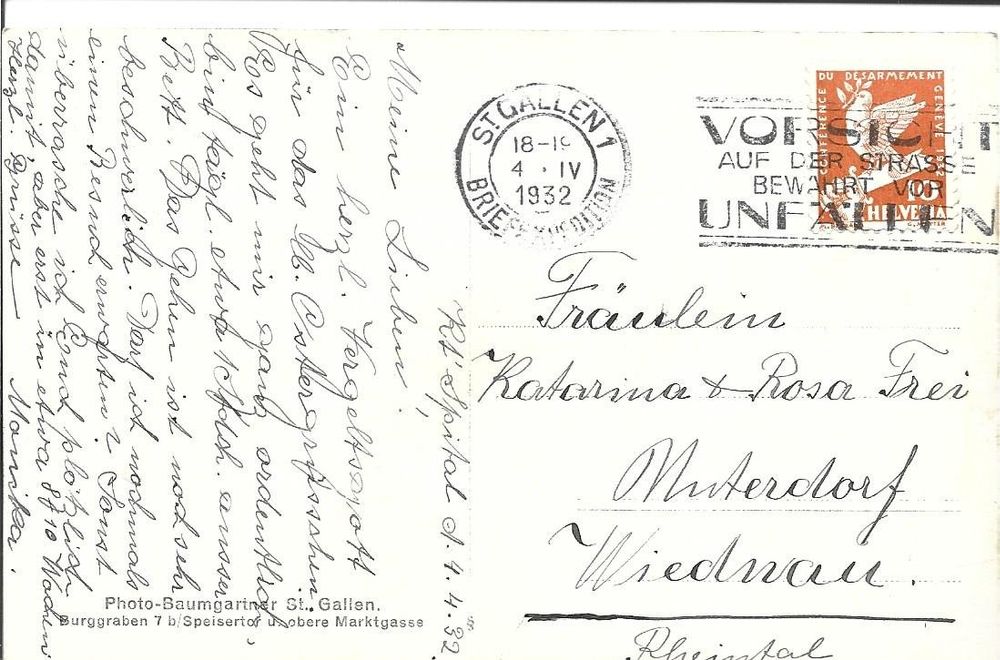 Kt' Spital d. 4. 4. 32.
Meine Lieben!
Ein herzl. Vergeltsgott
für das lb. Ostergrüsschen
Es geht mir ganz ordentlich,
bin tägl etwa 1 Stdch. ausser
Bett. Das Gehen ist noch sehr
beschwerlich. Darf ich nochmals
einen Besuch erwarten? Sonst
überrasche ich Euch plötzlich
damit, aber erst in etwa 8-10 Wochen
Herzl Grüsse Monika.
Photo-Baumgartner St. Gallen.
Burggraben 7 b/Speisertor u. obere Marktgasse
ST. GALLEN 1
18-19
4. IV
1932
BRIEFEXPEDITION
CONFERENCE DU DESARMEMENT GENEVE 1932
10
HELVETIA
VORSICHT
AUF DER STRASSE
BEWAHRT VOR
UNFÄLLEN
Fräulein
Katarina & Rosa Frei
Unterdorf
Wiednau.
Rheintal